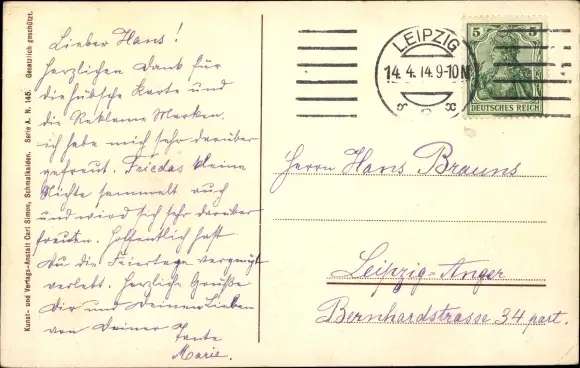 Lieber Hans!
Herzlichen Dank für
die hübsche Karte und
die Reklame Marken,
ich habe mich sehr darüber
gefreut. Friedas kleine
Nichte sammelt auch
und wird sich sehr darüber
freuen. Hoffentlich hast
Du die Feiertage vergnügt
verlebt. Herzliche Grüße
Dir und Deinen Lieben
von Deiner Tante
Marie.
Kunst- und Verlags-Anstalt Carl Simon, Schmalkalden. Serie A. N. 145. Gesetzlich geschützt.
LEIPZIG
14.4.14.9-10N
8 8
5 5
DEUTSCHES REICH
Herrn Hans Brauns
Leipzig-Anger
Bernhardstrasse 34 part.